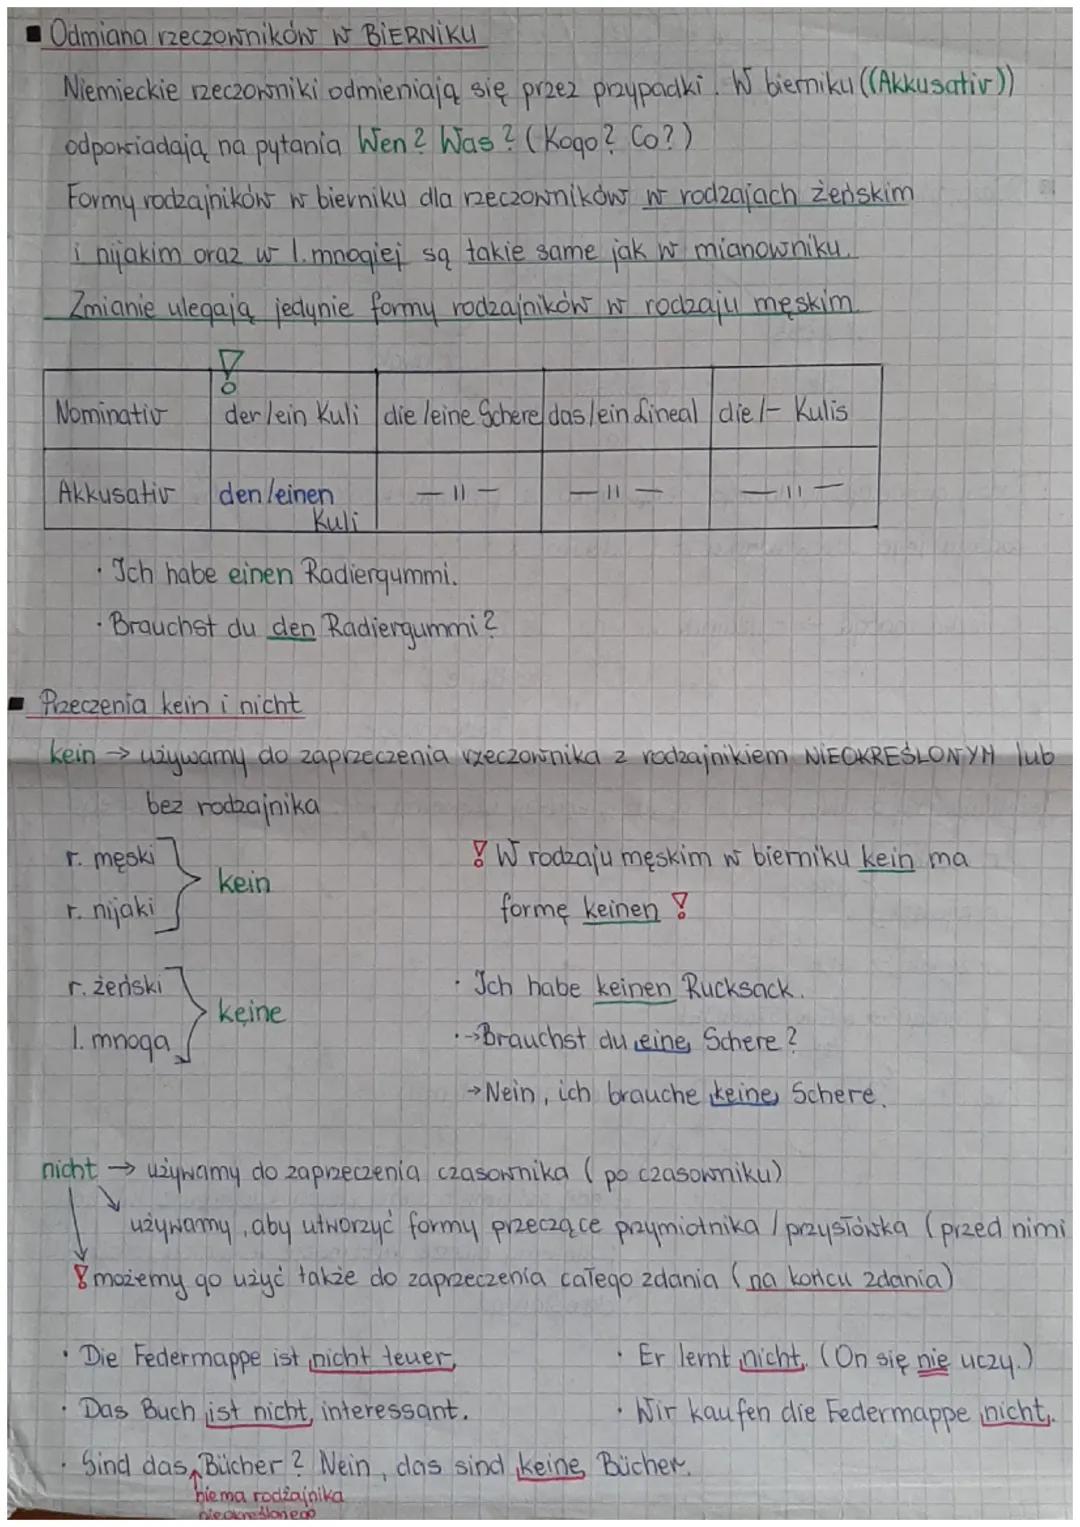 Odmiana rzeczowników w BIERNIKU
Niemieckie rzeczowniki odmieniają się przez przypadki. W bierniku ((Akkusativ))
odpowiadają na pytania Wen? Was? (Kogo? Co?)
Formy rodzajników w bierniku dla rzeczowników w rodzajach żeńskim
i nijakim oraz w l. mnogiej są takie same jak w mianowniku.
Zmianie ulegają jedynie formy rodzajników w rodzaju męskim.
!
Nominativ der/ein Kuli die/eine Schere das/ein Lineal die/- Kulis
Akkusativ den/einen Kuli —||— —||— —||—
· Ich habe einen Radiergummi.
· Brauchst du den Radiergummi?
Przeczenia kein i nicht
kein → używamy do zaprzeczenia rzeczownika z rodzajnikiem NIEOKREŚLONYM lub
bez rodzajnika
r. męski
r. nijaki
kein
! W rodzaju męskim w bierniku kein ma
formę keinen !
r. żeński
l. mnoga
keine
· Ich habe keinen Rucksack.
· → Brauchst du eine Schere?
→ Nein, ich brauche keine Schere.
nicht → używamy do zaprzeczenia czasownika (po czasowniku)
używamy, aby utworzyć formy przeczące przymiotnika/przysłówka (przed nimi
! możemy go użyć także do zaprzeczenia całego zdania (na końcu zdania)
· Die Federmappe ist nicht teuer.
· Er lernt nicht. (On się nie uczy.)
· Das Buch ist nicht interessant.
· Wir kaufen die Federmappe nicht.
· Sind das Bücher? Nein, das sind keine Bücher.
nie ma rodzajnika
nieokreślonego